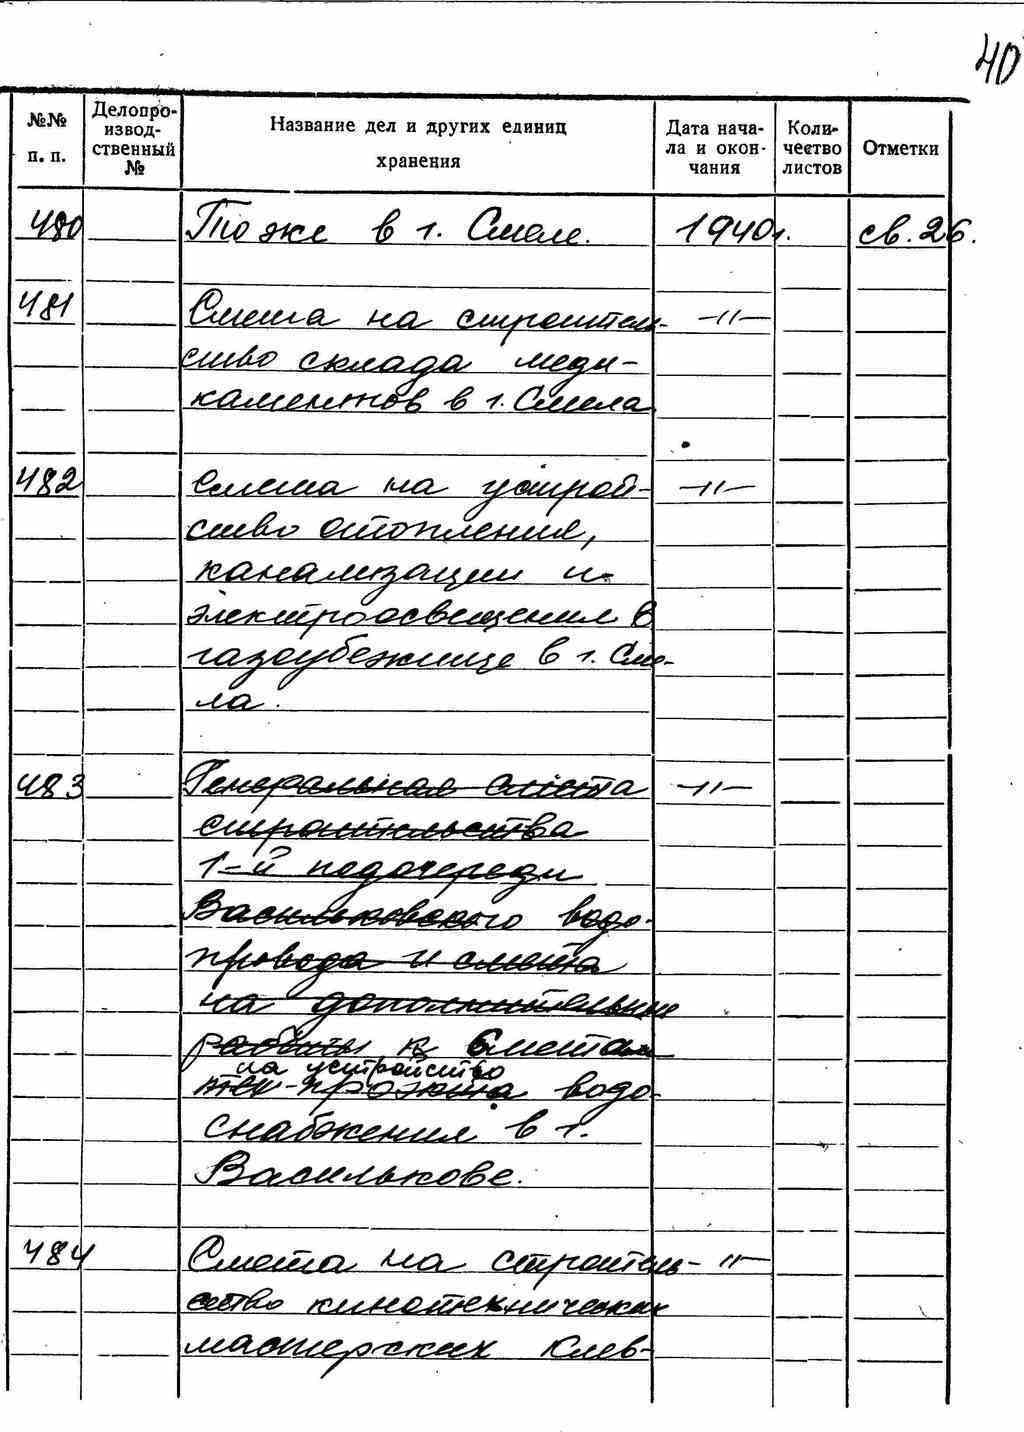 40
№№ п. п. Делопро-извод-ственный № Название дел и других единиц хранения Дата нача-ла и окон-чания Коли-чество листов Отметки
480 То же в г. Смеле. 1940г. св. 26.
481 Смета на строитель- -"-
ство склада меди-
каментов в г. Смела
482 Смета на устрой- -"-
ство отопления,
канализации и
электроосвещения в
газоубежище в г. Сме-
ла.
483 Генеральная смета -"-
строительства
1-й подочереди
Васильковского водо-
провода и смета
на дополнительные
работы к сметам
на устройство
тех-проекта водо-
снабжения в г.
Василькове.
484 Смета на строитель- -"-
ство кинотехнических
мастерских Киев-